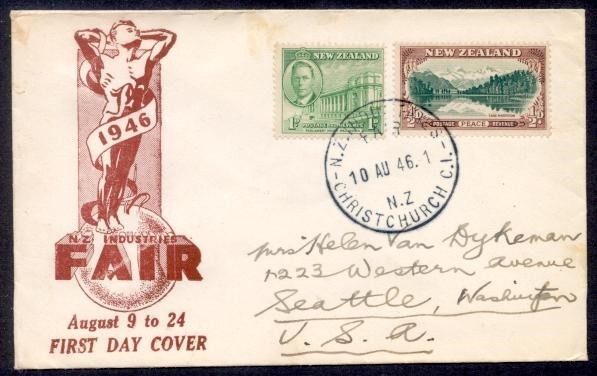 1946
N.Z. INDUSTRIES
FAIR
August 9 to 24
FIRST DAY COVER
NEW ZEALAND
1D 1D
POSTAGE
NEW ZEALAND
½D ½D
POSTAGE PEACE REVENUE
N.Z.
10 AU 46.1
N.Z
CHRISTCHURCH C.I.
Mrs Helen Van Dykeman
Western Avenue
Seattle, Washington
U.S.A.